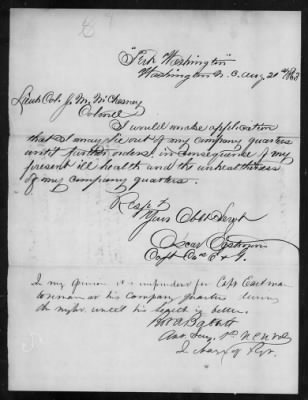 "Fort Washington"
Washington N. C. Aug 20th 1863
Lieut Col J. M. McChesney
Colonel
I would make application
that I may lie out of my company quarters
until further orders, in consequence of my
present ill health and the unhealthiness
of my company quarters.
Respt
Your Obt Servt
Oscar Eastmon
Capt Co
In my opinion it is imprudent for Capt Eastmon
to remain at his Company quarters during
the night until his health is better.
Asst Surg 1st N C Vols
In charge of Regt.